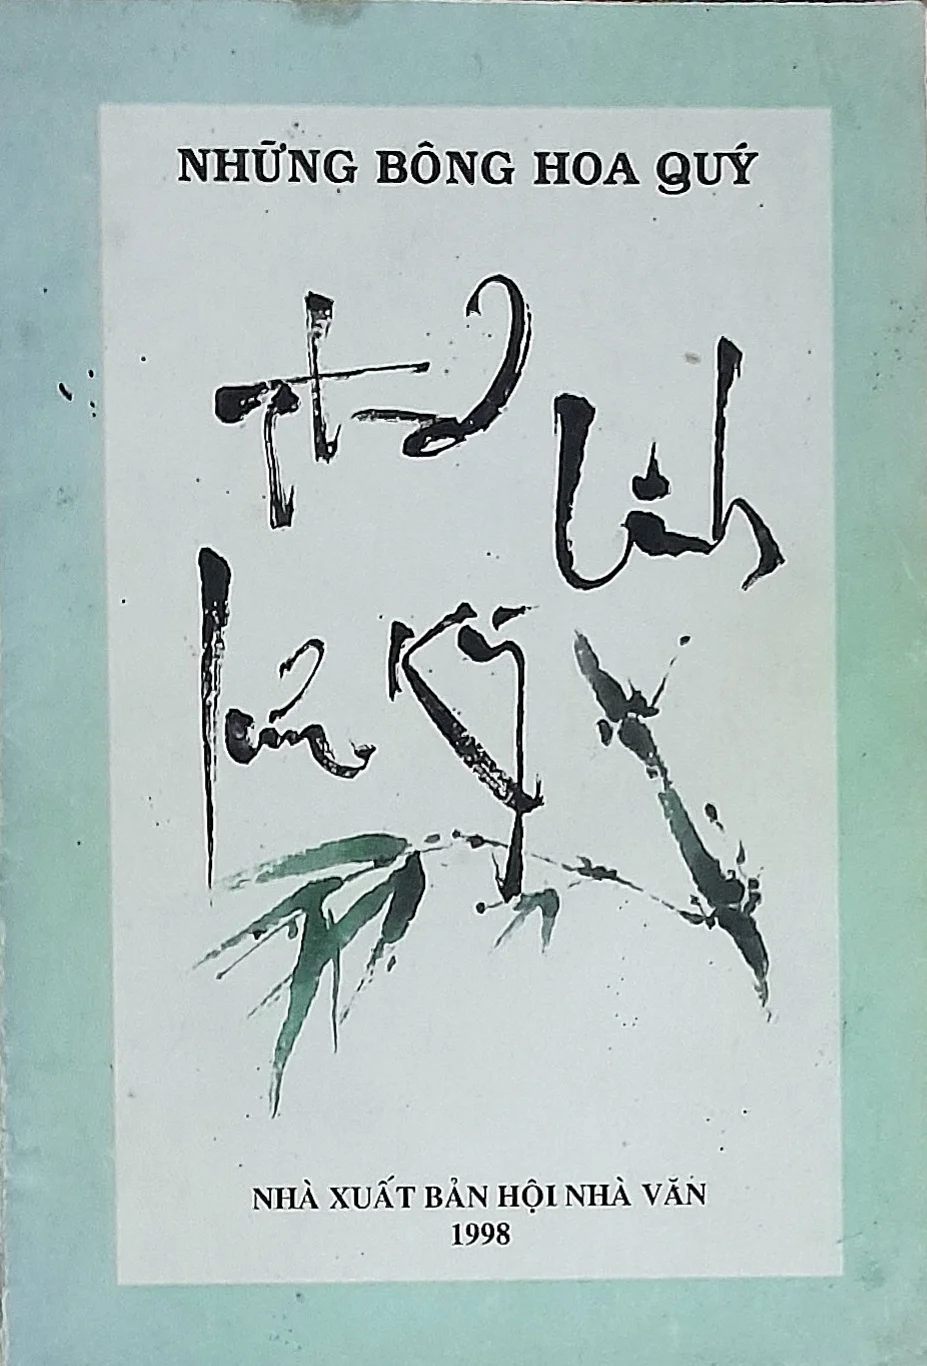 NHỮNG BÔNG HOA QUÝ
Thơ
NHÀ XUẤT BẢN HỘI NHÀ VĂN
1998